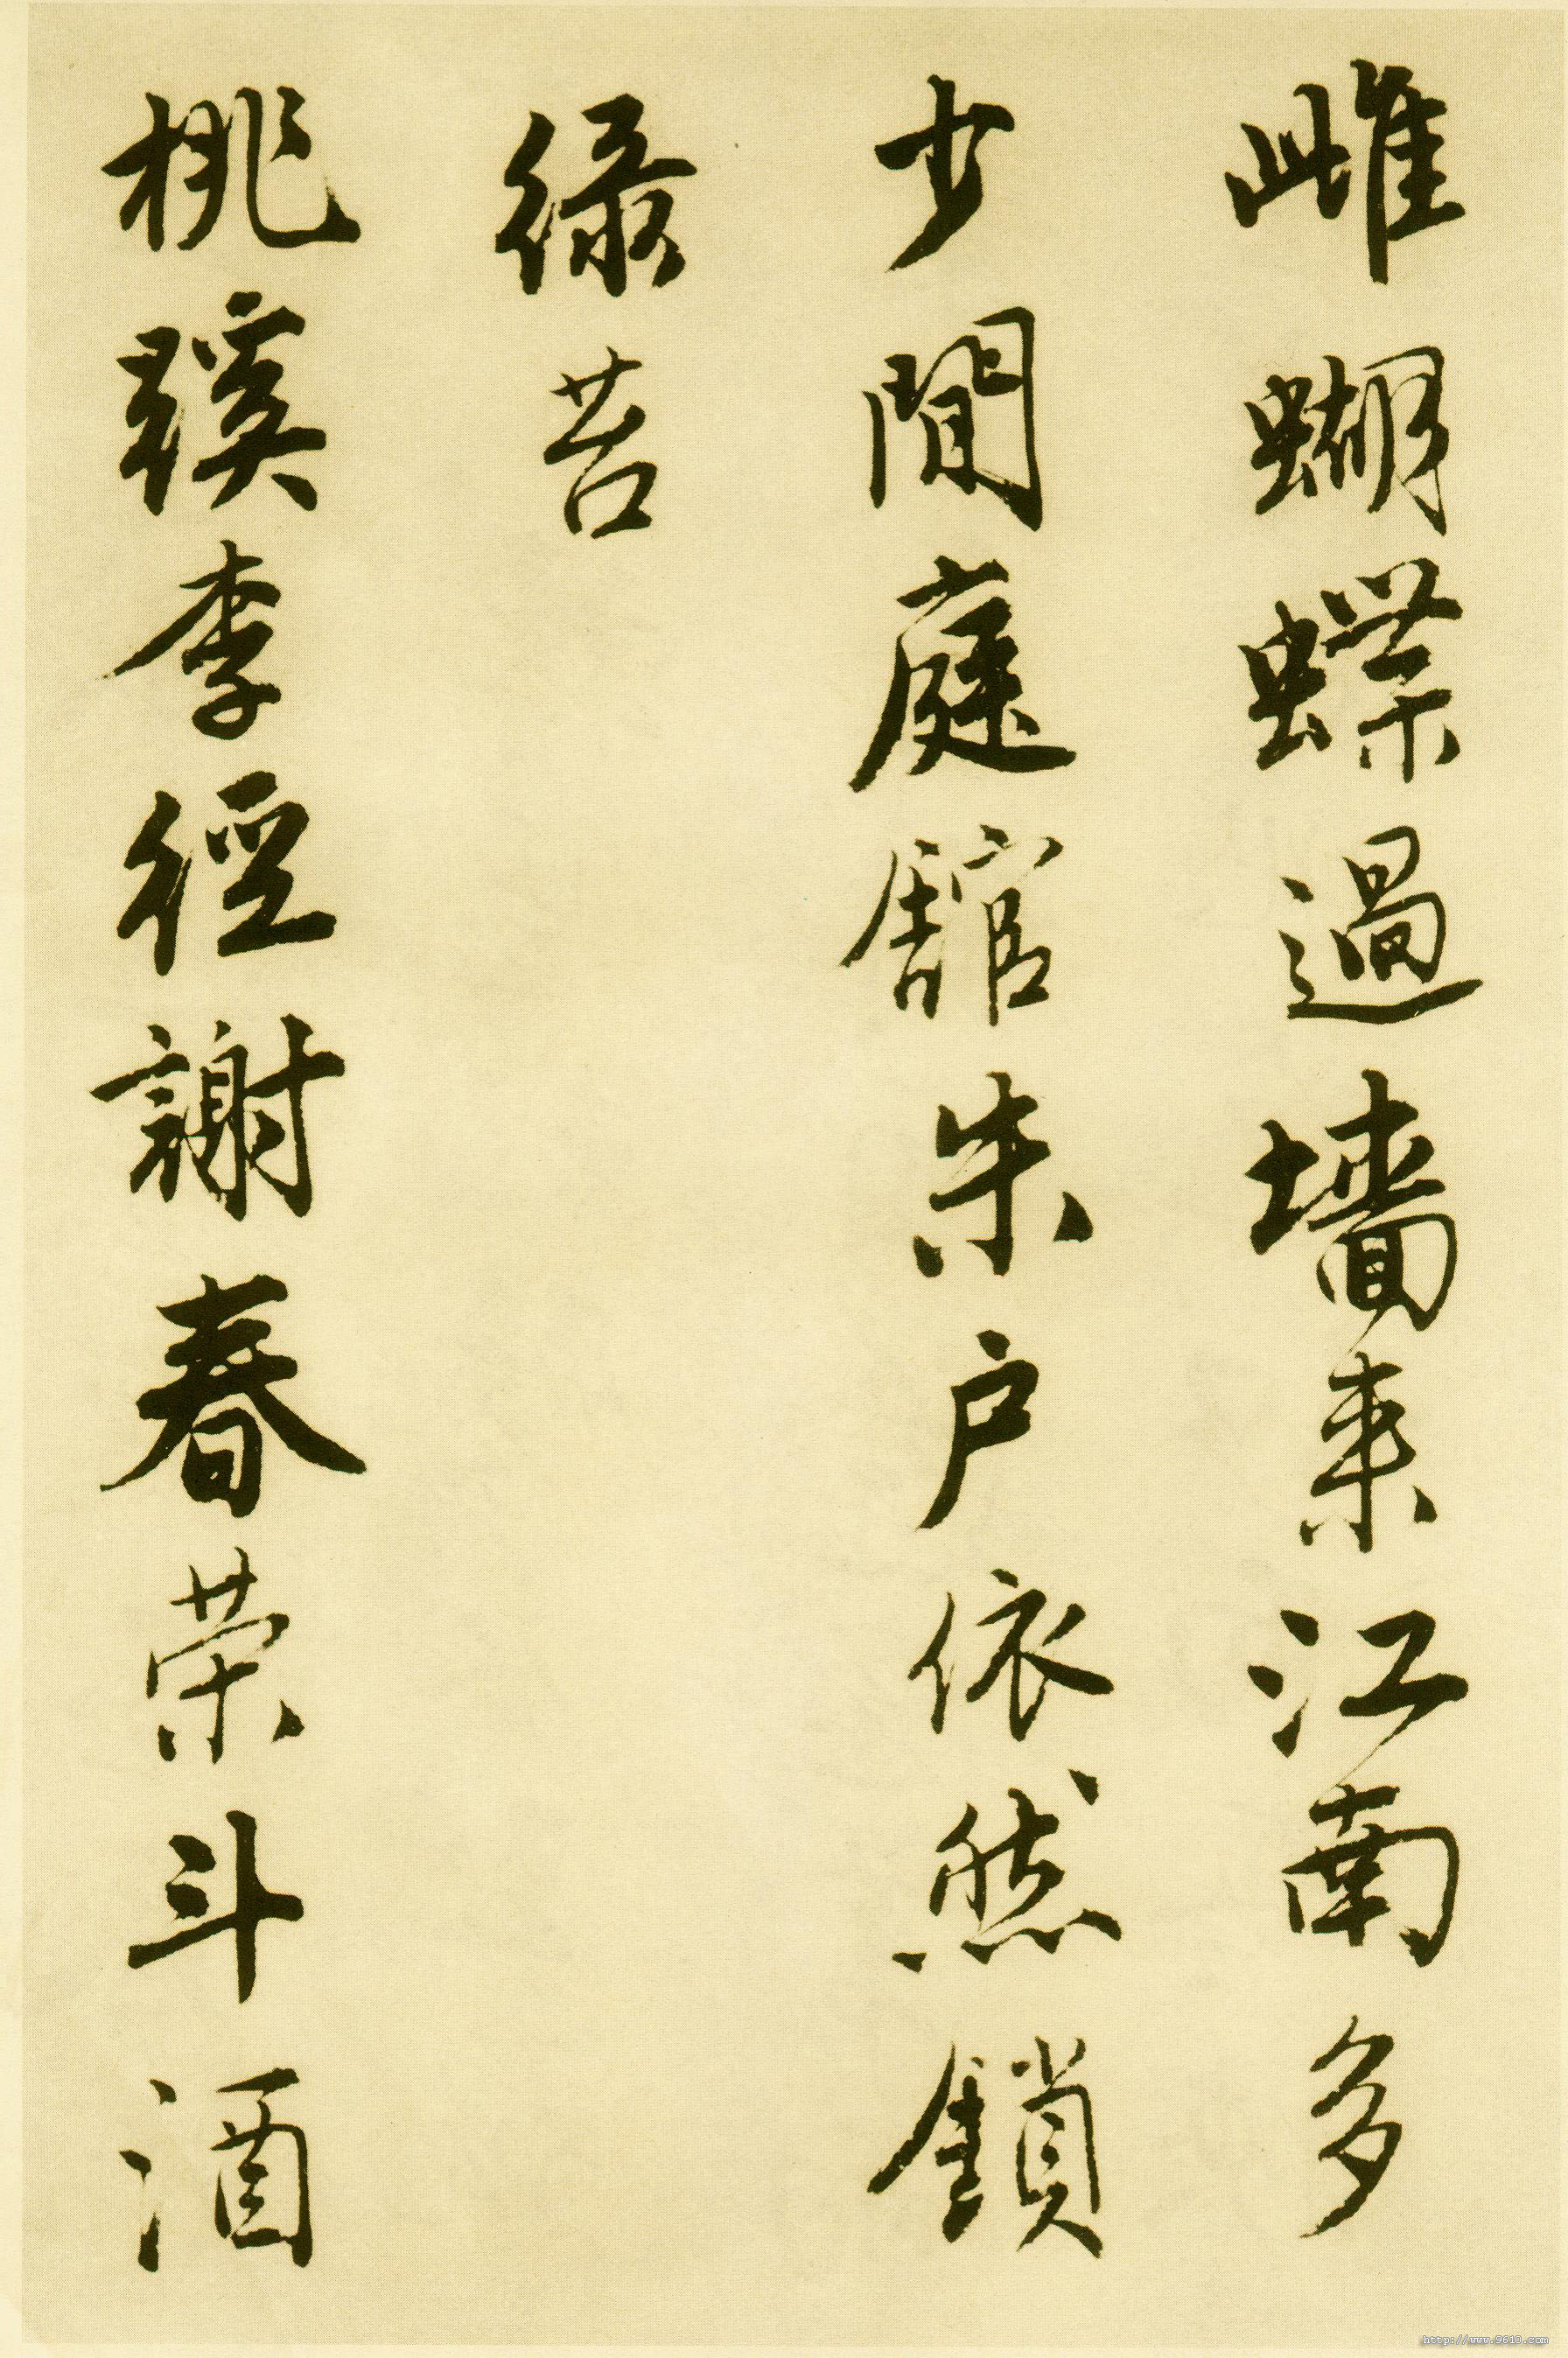 雌蝴蝶過墻来江南多
少閒庭館朱户依然鎖
緑苔
桃蹊李徑謝春荣斗酒
http://www.9610.com